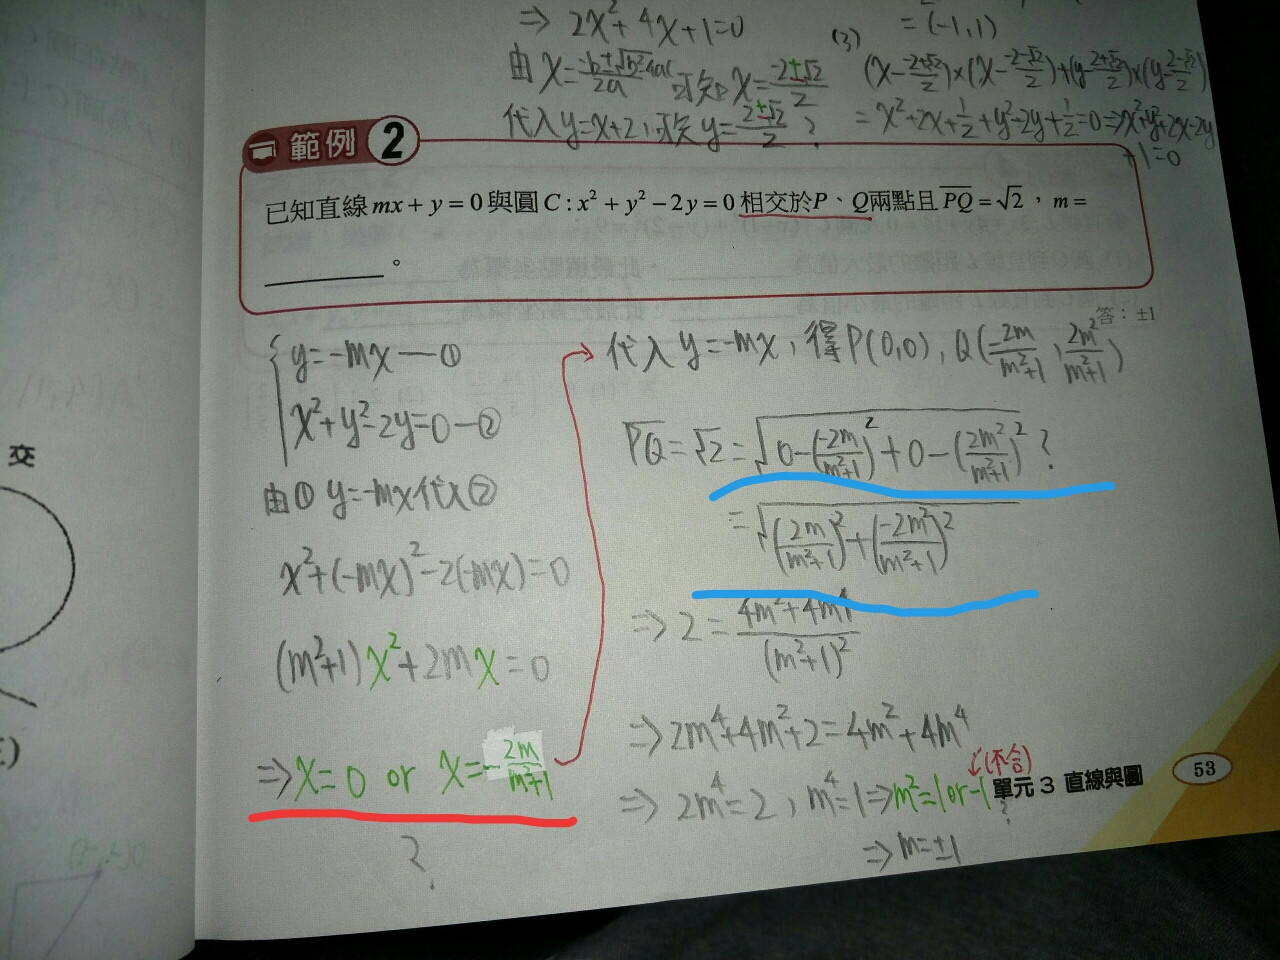 ⇒ 2x²+4x+1=0
由 x=(-b±√(b²-4ac))/2a 可知 x=(-2±√2)/2
代入y=x+2，求y=(2±√2)/2 ?
=(-1,1)
(3)
(x-(-2+√2)/2)×(x-(-2-√2)/2)+(y-(2+√2)/2)×(y-(2-√2)/2)
=x²+2x+1/2+y²-2y+1/2=0⇒x²+y²+2x-2y
+1=0
範例 2
已知直線 mx + y = 0 與圓 C : x² + y² − 2y = 0 相交於P、Q兩點且 PQ = √2，m =
________。
答：±1
y=-mx—①
x²+y²-2y=0—②
由① y=-mx代入②
x²+(-mx)²-2(-mx)=0
(m²+1)x²+2mx=0
⇒x=0 or x=-2m/(m²+1)
?
代入 y=-mx，得P(0,0)，Q(-2m/(m²+1), 2m²/(m²+1))
PQ=√2=√(0-(-2m/(m²+1))²+0-(2m²/(m²+1))²) ?
=√((2m/(m²+1))²+(-2m²/(m²+1))²)
⇒ 2=(4m²+4m⁴)/(m²+1)²
⇒2m⁴+4m²+2=4m²+4m⁴
⇒ 2m⁴=2，m⁴=1⇒m²=1 or -1
(不合)
?
⇒ m=±1
單元 3 直線與圓
53
交